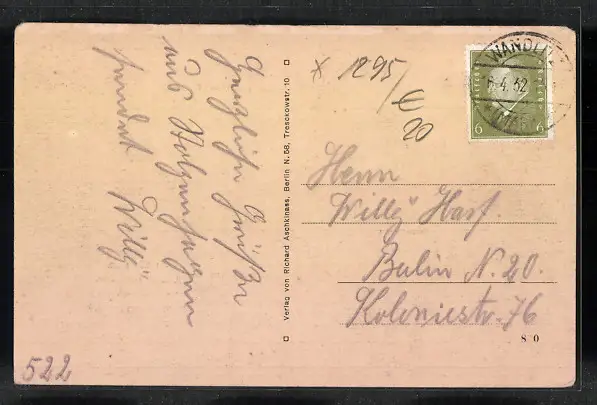 Herzliche Grüße
aus Stolzenhagen
sendet
Willy
Verlag von Richard Aschkinass, Berlin N.58, Tresckowstr. 10
* 1295/
€
20
WANDLITZ
4.32
6 6
Herrn
Willy Harf.
Berlin N. 20.
Koloniestr. 76
8 0
522